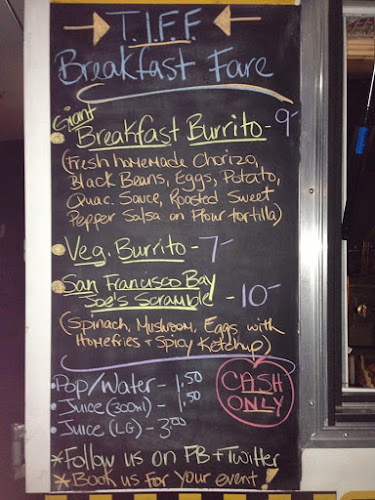 T.I.F.F.
Breakfast Fare
Giant
Breakfast Burrito - 9-
(Fresh homemade Chorizo,
Black Beans, Eggs, Potato,
Guac. Sauce, Roasted Sweet
Pepper Salsa on Flour tortilla)
Veg. Burrito - 7-
San Francusco Bay
Joe's Scramble - 10-
(Spinach, Mushroom, Eggs with
Homefries + Spicy Ketchup)
CASH
ONLY
Pop/Water - 1.50
Juice (300ml) - 1.50
Juice (LG) - 3.00
*Follow us on FB + Twitter
*Book us For Your event